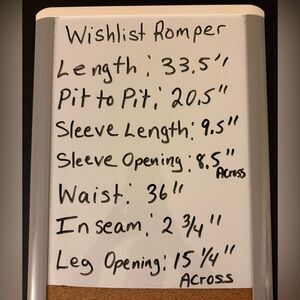 Wishlist Romper
Length: 33.5"
Pit to Pit: 20.5"
Sleeve Length: 9.5"
Sleeve Opening: 8.5"
Across
Waist: 36"
Inseam: 2 3/4"
Leg Opening: 15 1/4"
Across